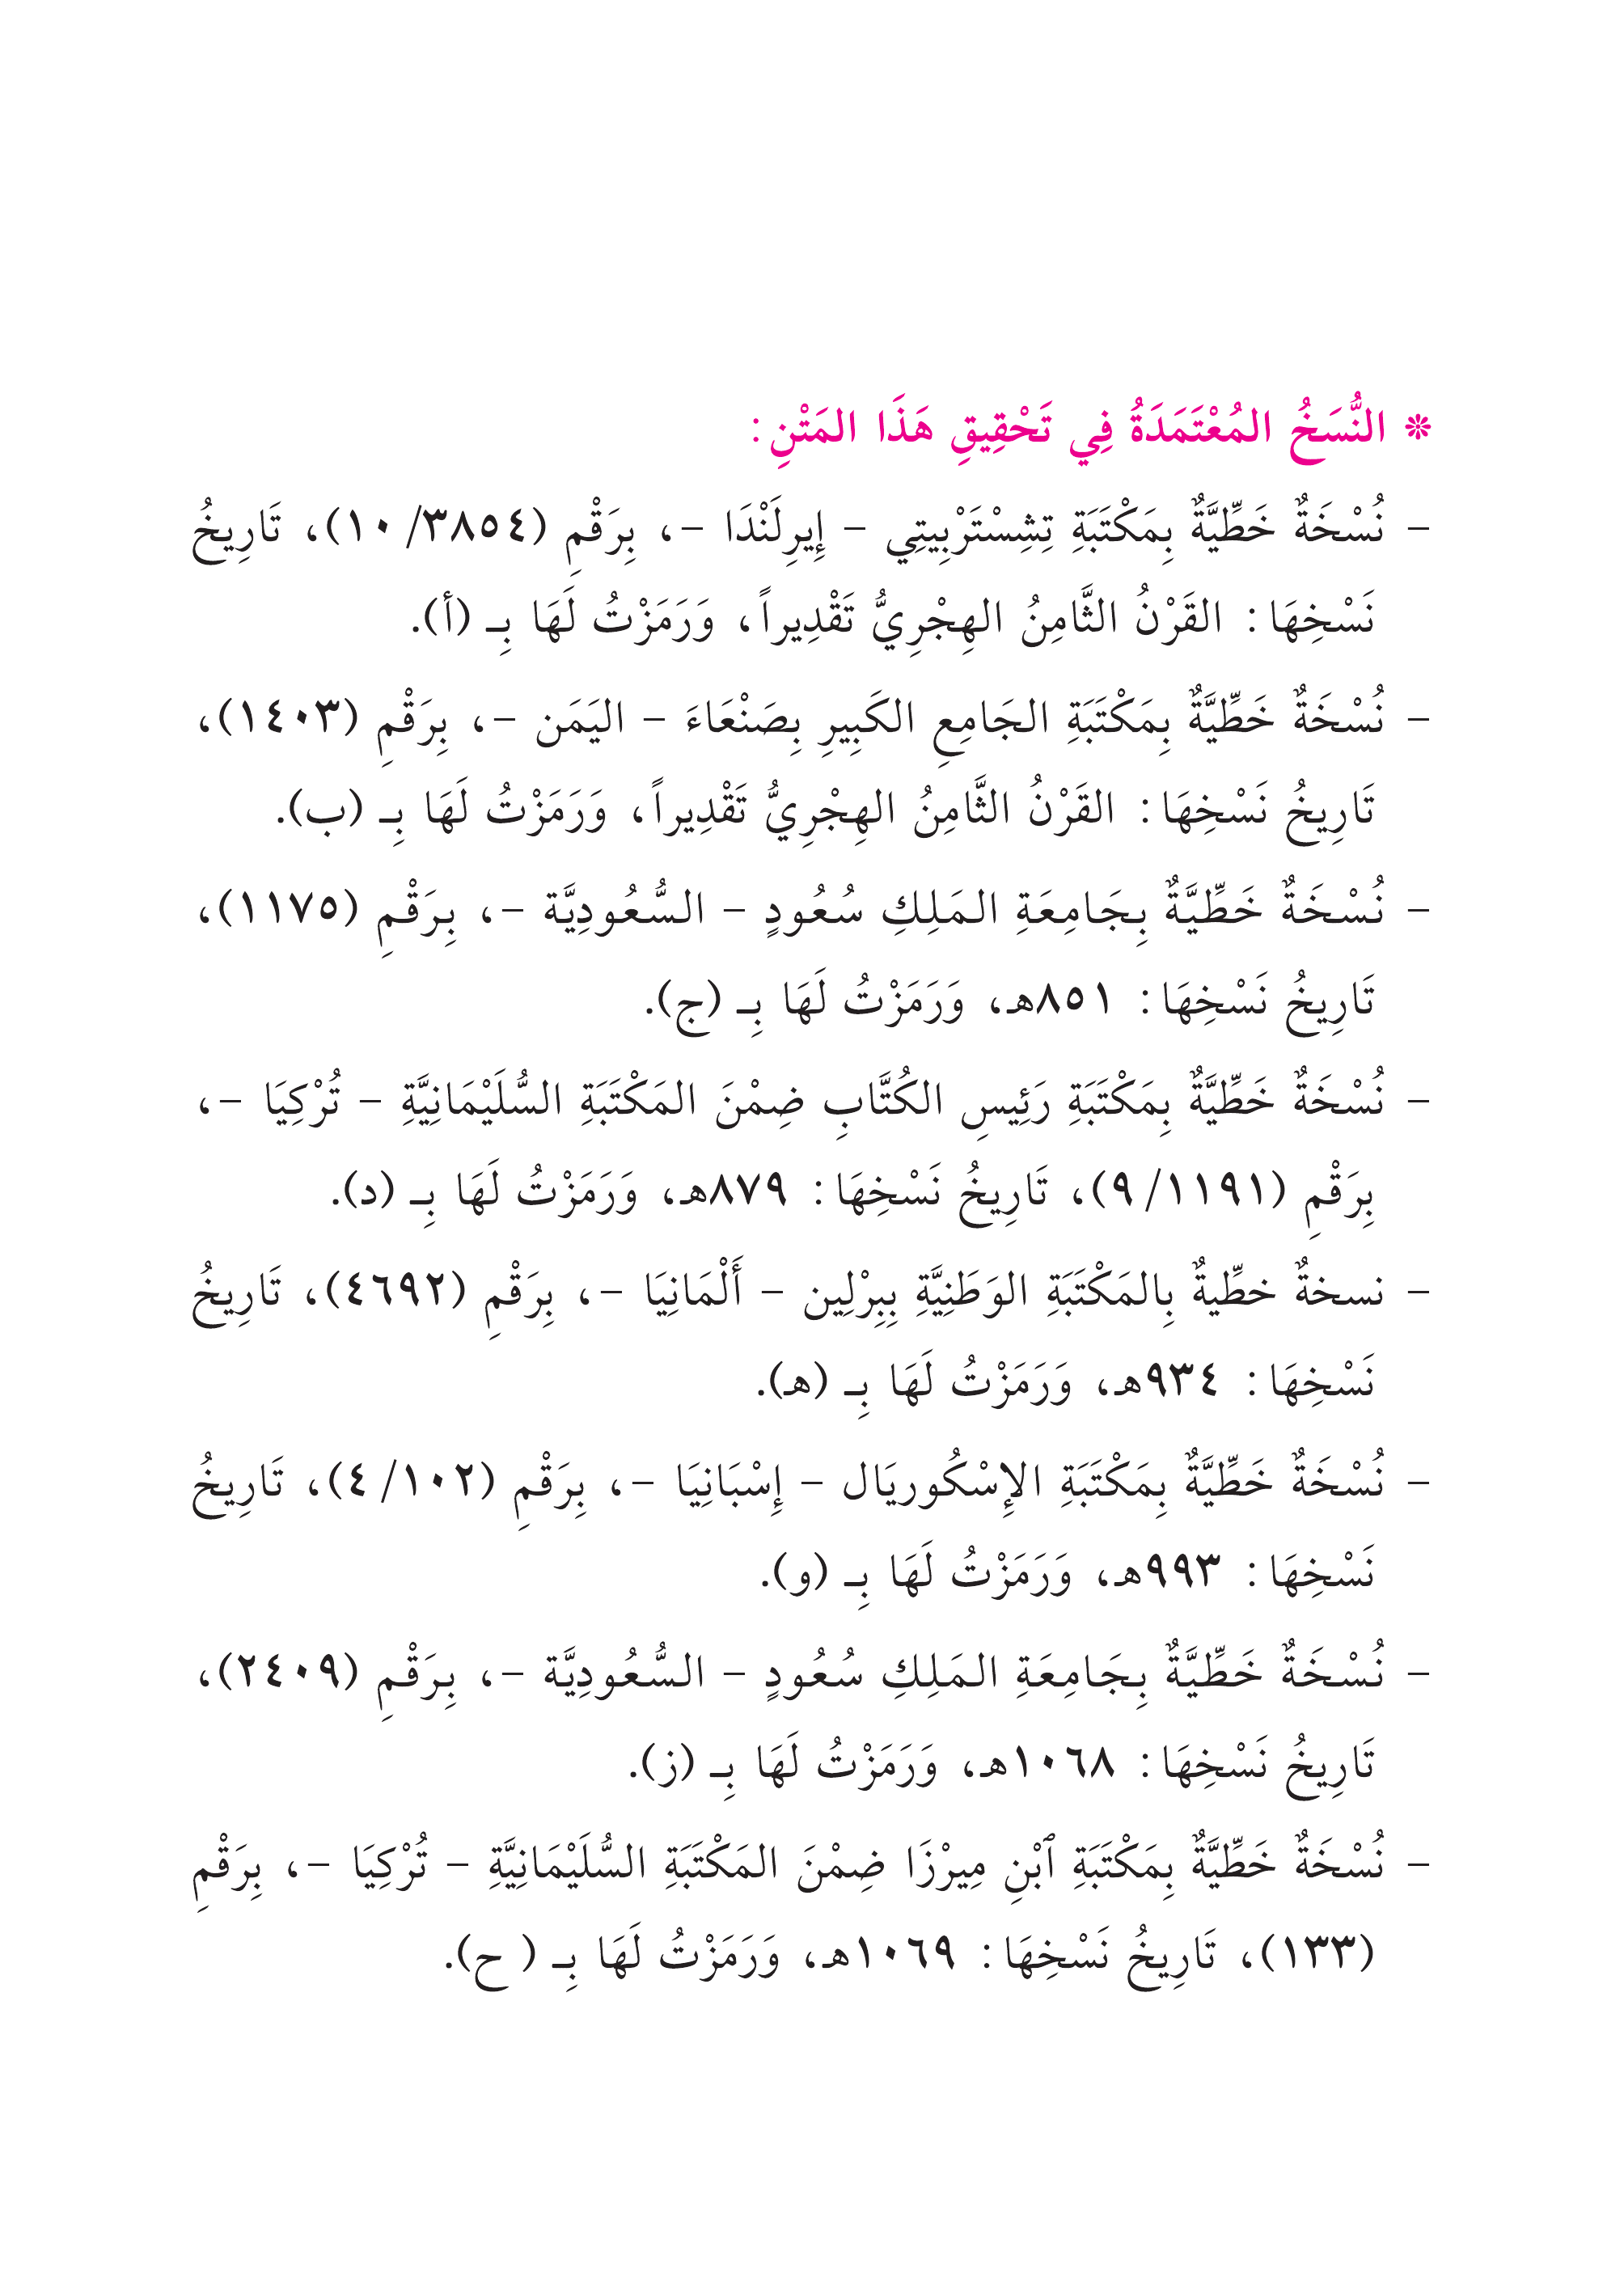 ❊ النُّسَخُ المُعْتَمَدَةُ فِي تَحْقِيقِ هَذَا المَتْنِ:
- نُسْخَةٌ خَطِّيَّةٌ بِمَكْتَبَةِ تِشِسْتَرْبِيتِي - إِيرِلَنْدَا -، بِرَقْمِ (٣٨٥٤/ ١٠)، تَارِيخُ
نَسْخِهَا: القَرْنُ الثَّامِنُ الهِجْرِيُّ تَقْدِيراً، وَرَمَزْتُ لَهَا بِـ (أ).
- نُسْخَةٌ خَطِّيَّةٌ بِمَكْتَبَةِ الجَامِعِ الكَبِيرِ بِصَنْعَاءَ - اليَمَن -، بِرَقْمِ (١٤٠٣)،
تَارِيخُ نَسْخِهَا: القَرْنُ الثَّامِنُ الهِجْرِيُّ تَقْدِيراً، وَرَمَزْتُ لَهَا بِـ (ب).
- نُسْخَةٌ خَطِّيَّةٌ بِجَامِعَةِ المَلِكِ سُعُودٍ - السُّعُودِيَّة -، بِرَقْمِ (١١٧٥)،
تَارِيخُ نَسْخِهَا: ٨٥١هـ، وَرَمَزْتُ لَهَا بِـ (ج).
- نُسْخَةٌ خَطِّيَّةٌ بِمَكْتَبَةِ رَئِيسِ الكُتَّابِ ضِمْنَ المَكْتَبَةِ السُّلَيْمَانِيَّةِ - تُرْكِيَا -،
بِرَقْمِ (١١٩١/ ٩)، تَارِيخُ نَسْخِهَا: ٨٧٩هـ، وَرَمَزْتُ لَهَا بِـ (د).
- نسخةٌ خطِّيةٌ بِالمَكْتَبَةِ الوَطَنِيَّةِ بِبِرْلِين - أَلْمَانِيَا -، بِرَقْمِ (٤٦٩٢)، تَارِيخُ
نَسْخِهَا: ٩٣٤هـ، وَرَمَزْتُ لَهَا بِـ (هـ).
- نُسْخَةٌ خَطِّيَّةٌ بِمَكْتَبَةِ الإِسْكُورِيَال - إِسْبَانِيَا -، بِرَقْمِ (١٠٢/ ٤)، تَارِيخُ
نَسْخِهَا: ٩٩٣هـ، وَرَمَزْتُ لَهَا بِـ (و).
- نُسْخَةٌ خَطِّيَّةٌ بِجَامِعَةِ المَلِكِ سُعُودٍ - السُّعُودِيَّة -، بِرَقْمِ (٢٤٠٩)،
تَارِيخُ نَسْخِهَا: ١٠٦٨هـ، وَرَمَزْتُ لَهَا بِـ (ز).
- نُسْخَةٌ خَطِّيَّةٌ بِمَكْتَبَةِ ٱبْنِ مِيرْزَا ضِمْنَ المَكْتَبَةِ السُّلَيْمَانِيَّةِ - تُرْكِيَا -، بِرَقْمِ
(١٣٣)، تَارِيخُ نَسْخِهَا: ١٠٦٩هـ، وَرَمَزْتُ لَهَا بِـ ( ح).